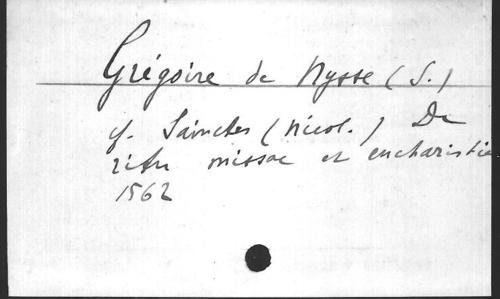 Grégoire de Nysse (S.)
cf. Sainctes (Nicol.) De
ritu missae et eucharistie
1562